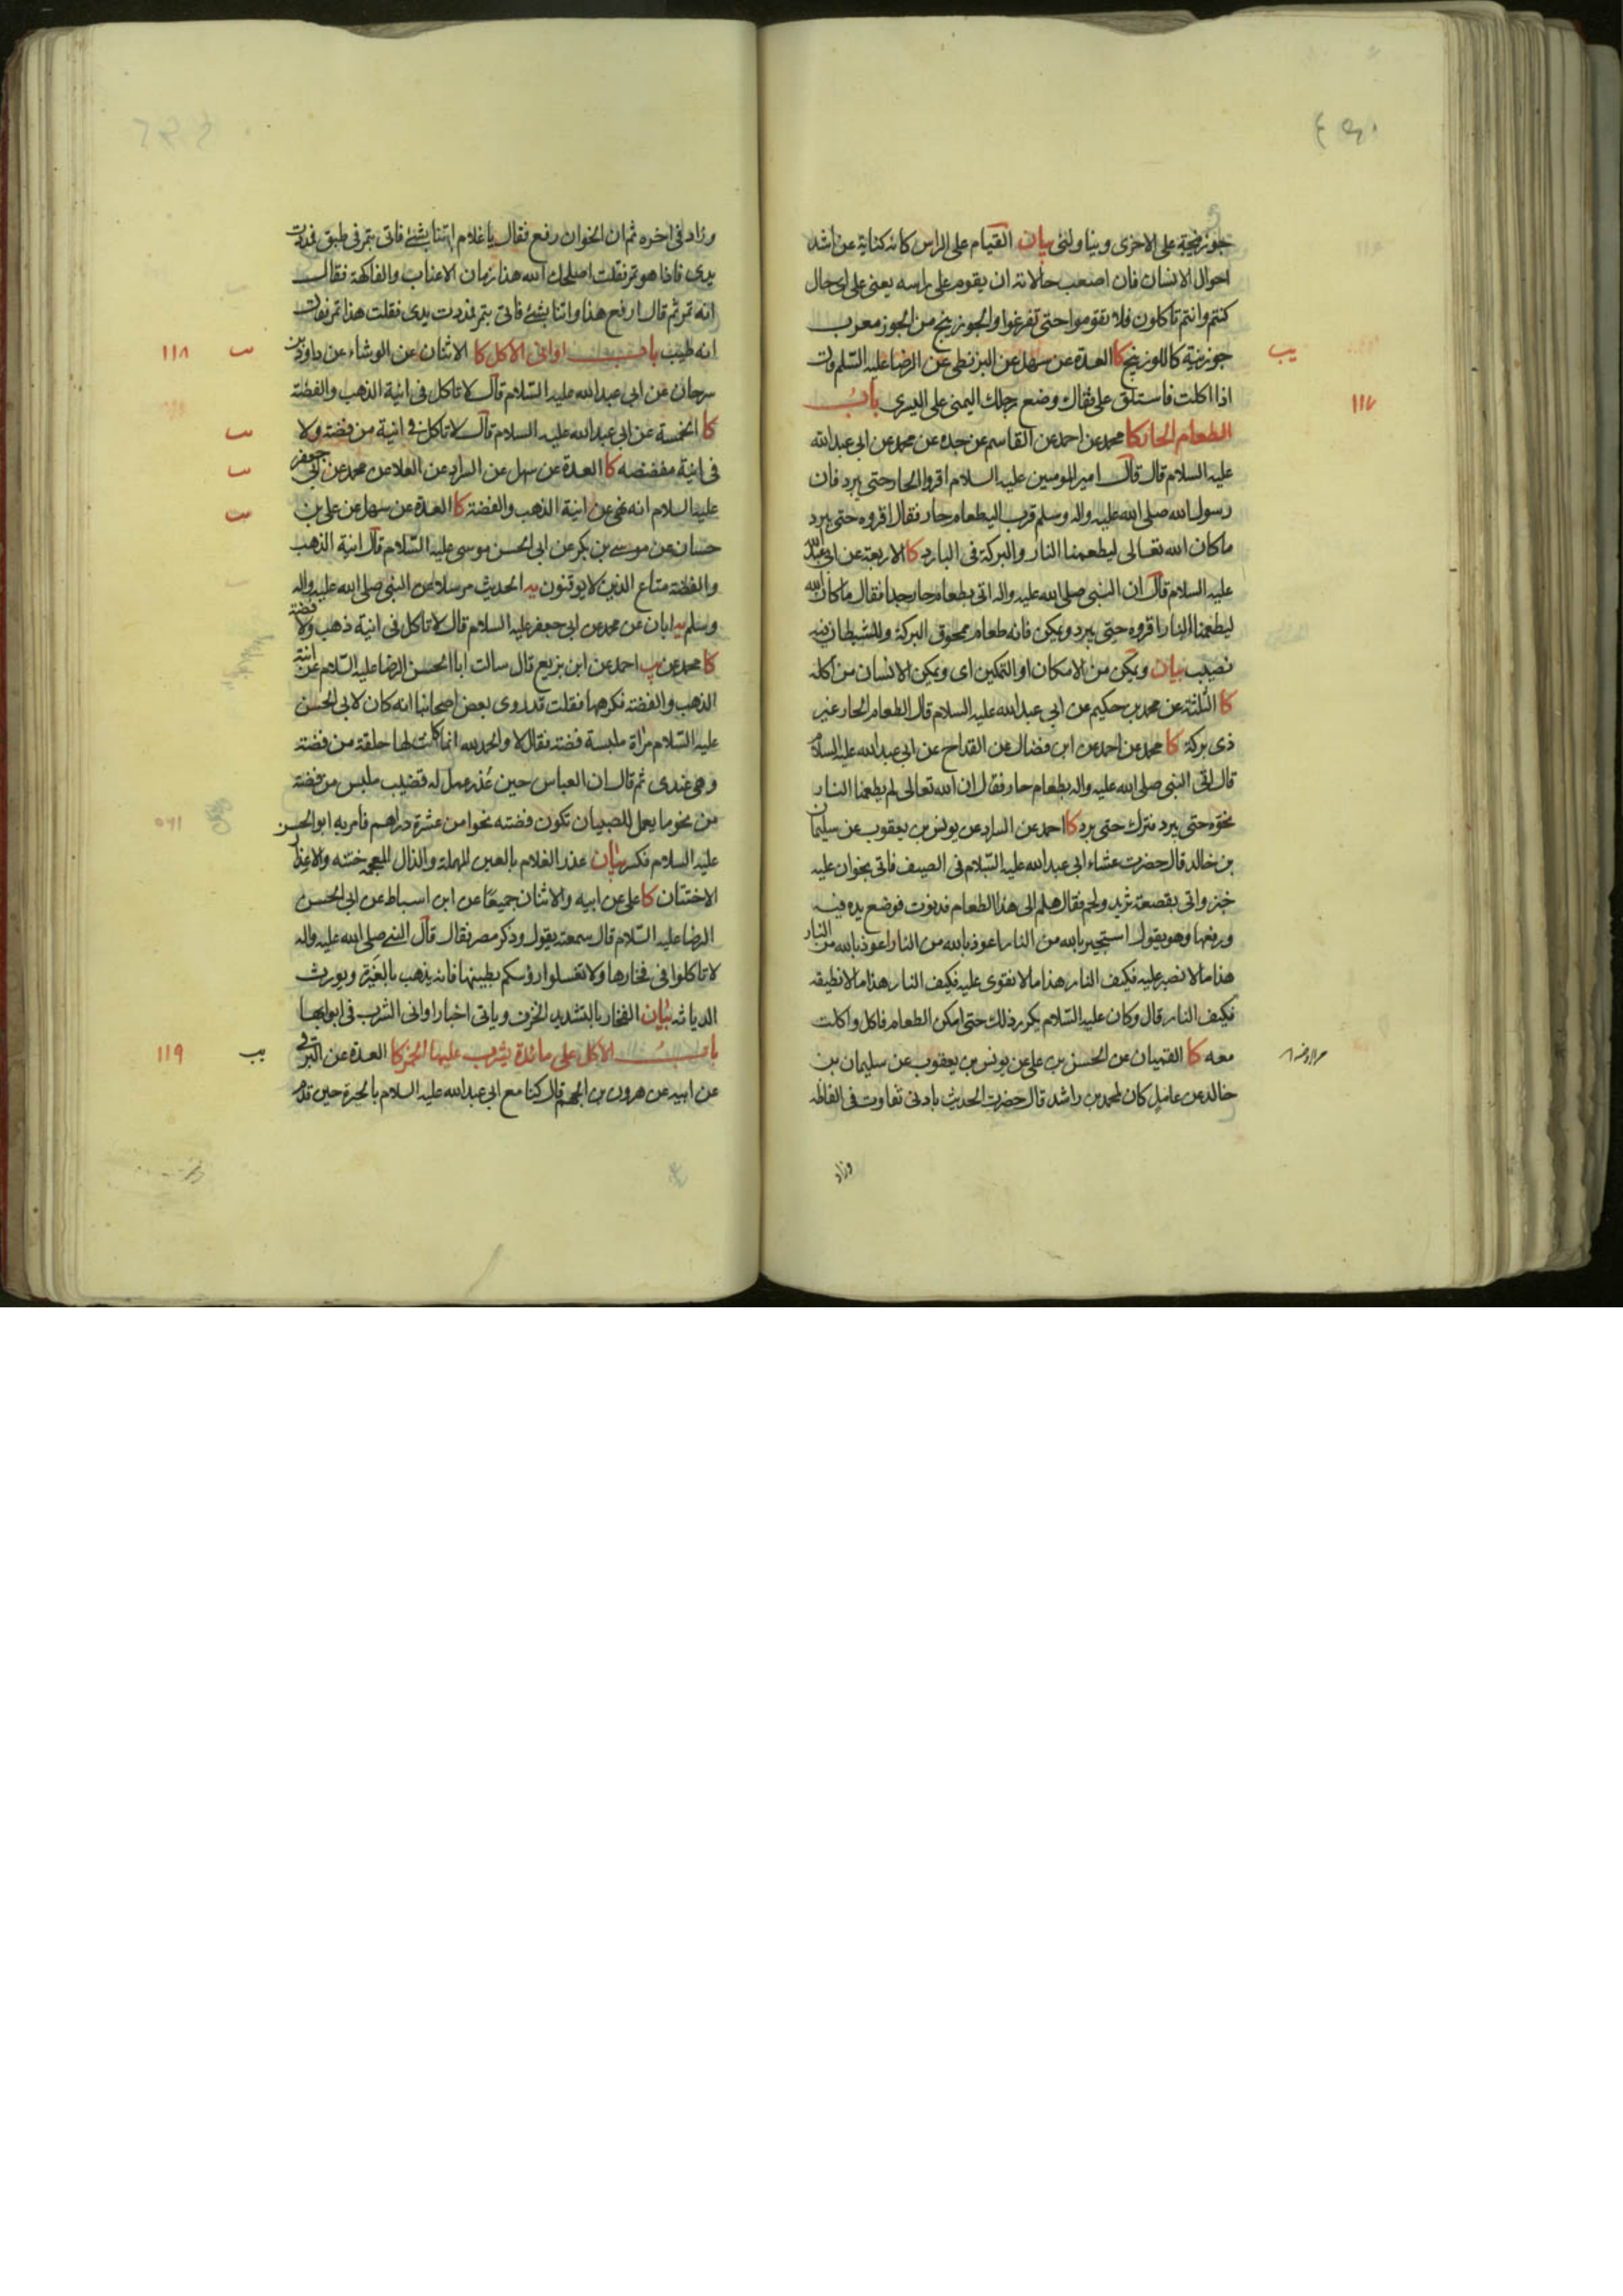 جوزينجة على الاخرى ويناولنى بيان القيام على الراس كانه كناية عن اشد
احوال الانسان فان اصعب حالاته ان يقوم على راسه يعنى على اى حال
كنتم وانتم تاكلون فلا تقوموا حتى تفرغوا والجوزينج من الجوز معرب
جوزينة كاللوزينج كا العدة عن سهل عن البزنطى عن الرضا عليه السلم قال
يب
اذا اكلت فاستلق على قفاك وضع رجلك اليمنى على اليسرى باب
١١٧
الطعام الحار كا محمد عن احمد عن القاسم عن جده عن محمد عن ابى عبد الله
عليه السلام قال قال امير المومنين عليه السلام اقروا الحار حتى يبرد فان
رسول الله صلى الله عليه واله وسلم قرب اليه طعام حار فقال اقروه حتى يبرد
ما كان الله تعالى ليطعمنا النار والبركة فى البارد كا الاربعة عن ابى عبد الله
عليه السلام قال ان النبى صلى الله عليه واله اتى بطعام حار جدا فقال ما كان الله
ليطعمنا النار اقروه حتى يبرد ويمكن فانه طعام ممحوق البركة وللشيطان فيه
نصيب بيان ويمكن من الامكان او التمكين اى ويمكن الانسان من اكله
كا الثلثة عن محمد بن حكيم عن ابى عبد الله عليه السلام قال الطعام الحار غير
ذى بركة كا محمد عن احمد عن ابن فضال عن القداح عن ابى عبد الله عليه السلام
قال اتى النبى صلى الله عليه واله بطعام حار فقال ان الله تعالى لم يطعمنا النار
نحوه حتى يبرد فترك حتى برد كا احمد عن السراد عن يونس بن يعقوب عن سليمان
بن خالد قال حضرت عشاء ابى عبد الله عليه السلام فى الصيف فاتى بخوان عليه
خبز واتى بقصعة ثريد ولحم فقال هلم الى هذا الطعام فدنوت فوضع يده فيه
ورفعها وهو يقول استجير بالله من النار اعوذ بالله من النار اعوذ بالله من النار
هذا ما لا نصبر عليه فكيف النار هذا ما لا نقوى عليه فكيف النار هذا ما لا نطيقه
فكيف النار قال وكان عليه السلام يكرر ذلك حتى امكن الطعام فاكل واكلت
معه كا القميان عن الحسن بن على عن يونس بن يعقوب عن سليمان بن
خالد عن عامل كان لمحمد بن راشد قال حضرت الحديث بادنى تفاوت فى الفاظه
وزاد
وزاد فى اخره ثم ان الخوان رفع فقال يا غلام ائتنا بشئ فاتى بتمر فى طبق فمددت
يدى فاذا هو تمر فقلت اصلحك الله هذا زمان الاعناب والفاكهة فقال
انه تمر ثم قال ارفع هذا واتنا بشئ فاتى بتمر فمددت يدى فقلت هذا تمر فقال
انه طيب باب اوانى الاكل كا الاثنان عن الوشاء عن داود بن
١١٨
سرحان عن ابى عبد الله عليه السلام قال لا تاكل فى انية الذهب والفضة
كا الخمسة عن ابى عبد الله عليه السلام قال لا تاكل فى انية من فضة ولا
فى انية مفضضه كا العدة عن سهل عن السراد عن العلا عن محمد عن ابى جعفر
عليه السلام انه نهى عن انية الذهب والفضة كا العدة عن سهل عن على بن
حسان عن موسى بن بكر عن ابى الحسن موسى عليه السلام قال انية الذهب
والفضة متاع الذين لا يوقنون يه الحديث مرسلا عن النبى صلى الله عليه واله
وسلم يه ابان عن محمد عن ابى جعفر عليه السلام قال لا تاكل فى انية ذهب ولا فضة
كا محمد عن يب احمد عن ابن بزيع قال سالت ابا الحسن الرضا عليه السلام عن انية
الذهب والفضة فكرهها فقلت قد روى بعض اصحابنا انه كان لابى الحسن
عليه السلام مراة ملبسة فضة فقال لا والحمد لله انما كانت لها حلقة من فضة
وهى عندى ثم قال ان العباس حين عذر عمل له قضيب ملبس من فضة
من نحو ما يعمل للصبيان تكون فضته نحوا من عشرة دراهم فامر به ابو الحسن
عليه السلام فكسر بيان عذر الغلام بالعين المهملة والذال المعجمه ختنه والاعذار
الاختتان كا على عن ابيه والاثنان جميعا عن ابن اسباط عن ابى الحسن
الرضا عليه السلام قال سمعته يقول وذكر مصر فقال قال النبى صلى الله عليه واله
لا تاكلوا فى فخارها ولا تغسلوا رؤسكم بطينها فانه يذهب بالغيرة ويورث
الدياثه بيان الفخار بالتشديد الخزف وياتى اخبار اوانى الشرب فى ابوابها
باب الاكل على مائدة يشرب عليها الخمر كا العدة عن البرقى
يب
١١٩
عن ابيه عن هرون بن الجهم قال كنا مع ابى عبد الله عليه السلام بالحيرة حين قدم